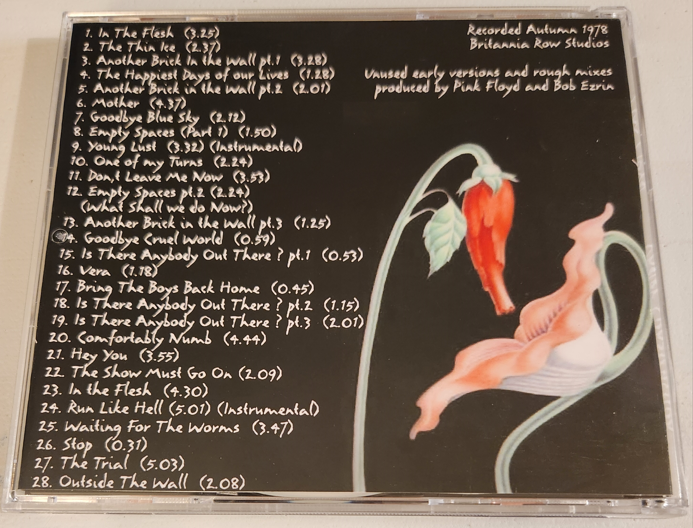 1. In The Flesh (3.25)
2. The Thin Ice (2.37)
3. Another Brick In the Wall pt.1 (3.28)
4. The Happiest Days of our Lives (1.28)
5. Another Brick in the Wall pt.2 (2.01)
6. Mother (4.37)
7. Goodbye Blue Sky (2.12)
8. Empty Spaces (Part 1) (1.50)
9. Young Lust (3.32) (Instrumental)
10. One of my Turns (2.24)
11. Don,t Leave Me Now (3.53)
12. Empty Spaces pt.2 (2.24)
(What Shall we do Now?)
13. Another Brick in the Wall pt.3 (1.25)
14. Goodbye Cruel World (0.59)
15. Is There Anybody Out There ? pt.1 (0.53)
16. Vera (1.18)
17. Bring The Boys Back Home (0.45)
18. Is There Anybody Out There ? pt.2 (1.15)
19. Is There Anybody Out There ? pt.3 (2.01)
20. Comfortably Numb (4.44)
21. Hey You (3.55)
22. The Show Must Go On (2.09)
23. In the Flesh (4.30)
24. Run Like Hell (5.01) (Instrumental)
25. Waiting For The Worms (3.47)
26. Stop (0.31)
27. The Trial (5.03)
28. Outside The Wall (2.08)
Recorded Autumn 1978
Britannia Row Studios
Unused early versions and rough mixes
produced by Pink Floyd and Bob Ezrin